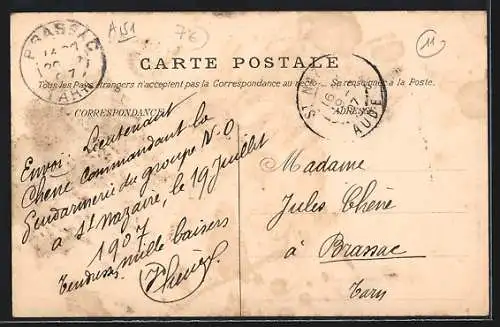 BRASSAC
TARN
A151
76
11
CARTE POSTALE
Tous les Pays étrangers n'acceptent pas la Correspondance au recto. Se renseigner à la Poste.
CORRESPONDANCE
ADRESSE
AUDE
Envoi: Lieutenant
Chêne commandant la
Gendarmerie du groupe N-O
a St Nazaire, le 19 Juillet
1907
Tendres mille baisers
Madame
Jules Chêne
à Brassac
Tarn